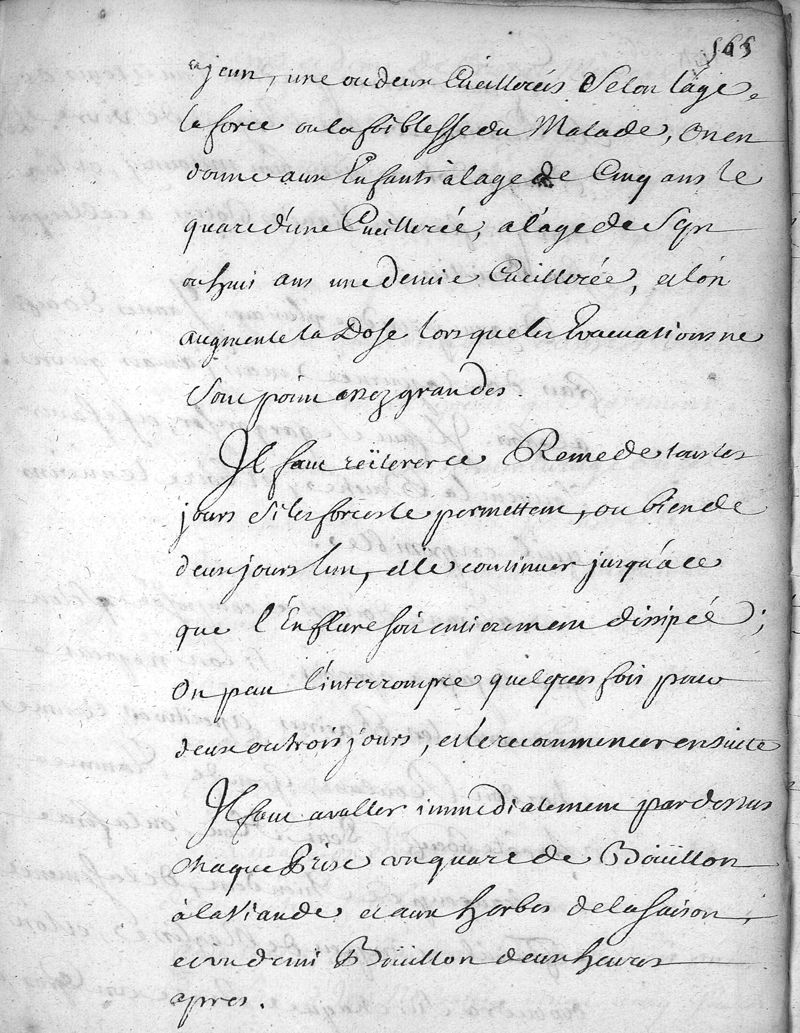 165
a jeun, une ou deux Cueillerées Selon l'age,
la force ou la foiblesse du Malade, On en
donne aux Enfants à l'age de Cinq ans le
quart d'une Cueillerée, a l'áge de Sept
ou huit ans une demie Cueillerée, et l'ón
augmente la Dose lors que les Evacuations ne
Sont point assez grandes.
Il faut réïterer ce Remede tous les
jours Si les forces le permettent, ou bien de
deux jours l'un, et le continuer jusqu'à ce
que l'Enflure soit entierement dissipée;
On peut l'interrompre quelques fois pour
deux ou trois jours, et le recommencer ensuitte
Il faut avaller immediatement par dessus
chaque Prise un quart de Boüillon
à la Viande et aux Herbes de la Saison,
et un demi Boüillon deux heures
apres.